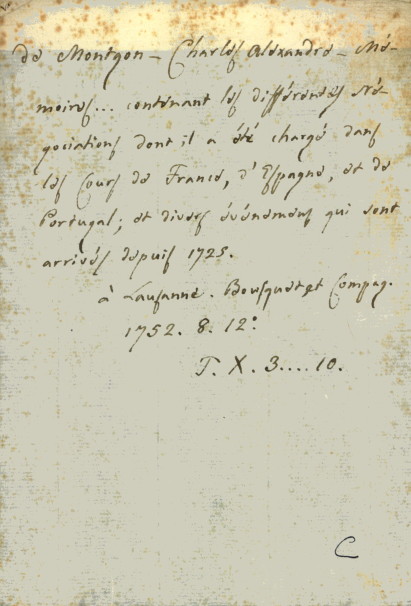 de Montgon - Charles Alexandre - Mé-
moires... contenant les différentes né-
gociations dont il a été chargé dans
les Cours de France, d'Espagne, et de
Portugal; et divers événemens qui sont
arrivés depuis 1725.
à Lausanne. Bousquet et Compag.
1752. 8. 12°.
T. X. 3....10.
C